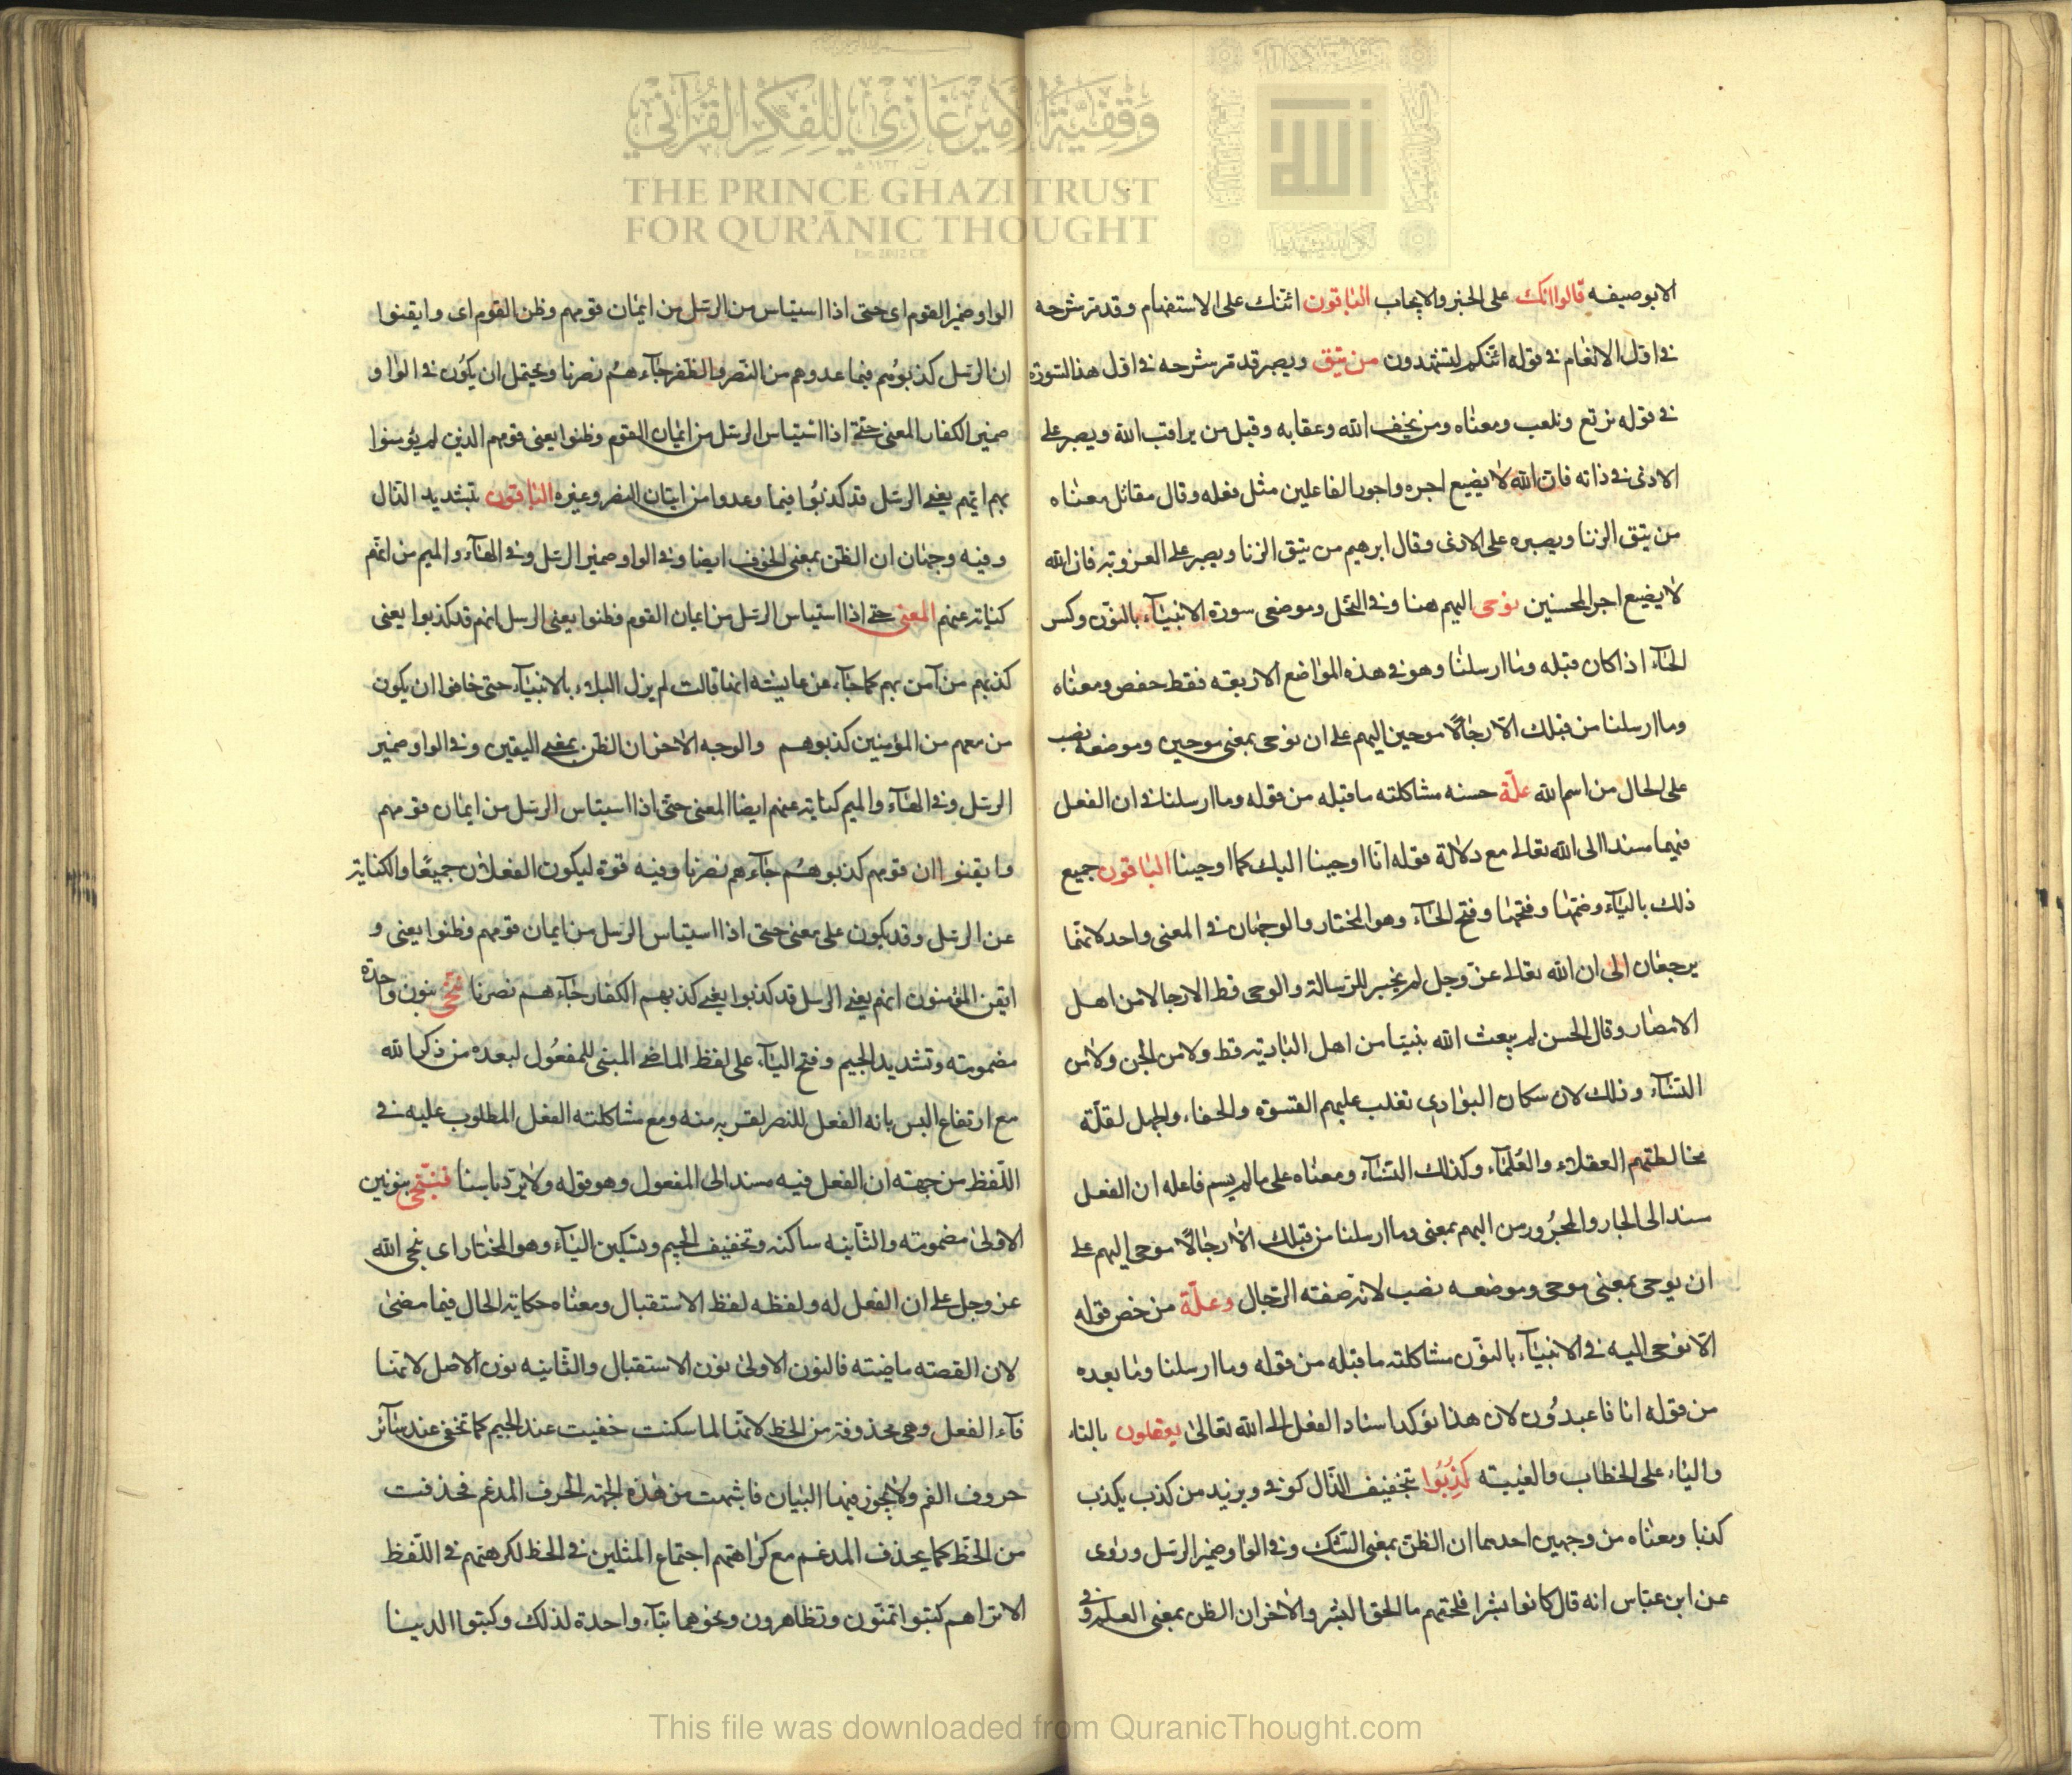 الابوصيفه قالوا انك على الخبر والايجاب الباقون ائنك على الاستفهام وقد مرشرحه
في اول الانعام في قوله ائنكم لتشهدون من يتق ويصبر قد مر شرحه في اول هذا السورة
في قوله نرتع ونلعب ومعناه ومن يخف الله وعقابه وقيل من يراقب الله ويصبر على
الاذى في ذاته فان الله لا يضيع اجره واجور الفاعلين مثل فعله وقال مقاتل معناه
من يتق الزنا ويصبره على الاذى وقال ابرهيم من يتق الزنا ويصبر على العزوبة فان الله
لا يضيع اجر المحسنين نوحى اليهم هنا وفي النحل وموضعى سورة الانبياء بالنون وكسر
الحاء اذا كان قبله وما ارسلنا وهو في هذه المواضع الاربعة فقط حفص ومعناه
وما ارسلنا من قبلك الا رجالا موحين اليهم على ان نوحى بمعنى موحين وموضعه نصب
على الحال من اسم الله علة حسنه مشاكلته ما قبله من قوله وما ارسلنا في ان الفعل
فيهما مسندا الى الله تعالى مع دلالة قوله انا اوحينا اليك كما اوحينا الباقون جميع
ذلك بالياء وضمها وفتحها وفتح الحاء وهو المختار والوجهان في المعنى واحد لانهما
يرجعان الى ان الله تعالى عز وجل لم يخبر للرسالة والوحى قط الا رجالا من اهل
الامصار وقال الحسن لم يبعث الله نبيا من اهل البادية قط ولا من الجن ولا من
النساء وذلك لان سكان البوادى تغلب عليهم القسوة والجفاء والجهل لقلة
مخالطتهم العقلاء والعلماء وكذلك النساء ومعناه على ما لم يسم فاعله ان الفعل
مسند الى الجار والمجرور من اليهم بمعنى وما ارسلنا من قبلك الا رجالا موحى اليهم على
ان يوحى بمعنى موحى وموضعه نصب لانه صفة الرجال وعلة من خص قوله
الا نوحى اليه في الانبياء بالنون مشاكلته ما قبله من قوله وما ارسلنا وما بعده
من قوله انا فاعبدون لان هذا يؤكد اسناد الفعل الى الله تعالى يعقلون بالتاء
والياء على الخطاب والغيبة كذبوا بتخفيف الذال كوفى ويزيد من كذب يكذب
كذبا ومعناه من وجهين احدهما ان الظن بمعنى الشك وفي الواو ضمير الرسل وروى
عن ابن عباس انه قال كانوا بشرا فلحقهم ما الحق البشر والاخر ان الظن بمعنى العلم وفي
الواو ضمير القوم اى حتى اذا استياس من الرسل من ايمان قومهم وظن القوم اى وايقنوا
ان الرسل كذبوهم فيما عدوهم من النصر والظفر جاءهم نصرنا ويحتمل ان يكون في الواو
ضمير الكفار المعنى حتى اذا استياس الرسل من ايمان القوم وظنوا يعنى قومهم الذين لم يؤمنوا
بهم انهم يعنى الرسل قد كذبوا فيما وعدوا من اتيان النصر وغيره الباقون بتشديد الذال
وفيه وجهان ان الظن بمعنى الخوف ايضا وفي الواو ضمير الرسل وفي الهاء والميم من انهم
كناية عنهم المعنى حتى اذا استياس الرسل من ايمان القوم فظنوا يعنى الرسل انهم قد كذبوا يعنى
كذبهم من آمن بهم كما جاء عن عايشه انها قالت لم يزل البلاء بالانبياء حتى خافوا ان يكون
من معهم من المؤمنين كذبوهم والوجه الاخر ان الظن بمعنى اليقين وفي الواو ضمير
الرسل وفي الهاء والميم كناية عنهم ايضا المعنى حتى اذا استياس الرسل من ايمان قومهم
وايقنوا ان قومهم كذبوهم جاءهم نصرنا وفيه قوة ليكون الفعلان جميعا والكناية
عن الرسل وقد يكون على معنى حتى اذا استياس الرسل من ايمان قومهم وظنوا يعنى و
ايقن المؤمنون انهم يعنى الرسل قد كذبوا يعنى كذبهم الكفار جاءهم نصرنا فنجى بنون واحدة
مضمومة وتشديد الجيم وفتح الياء على لفظ الماضى المبنى للمفعول لبعده من ذكر الله
مع ارتفاع البس بانه الفعل للنصر لقربه منه ومع مشاكلته الفعل المطلوب عليه في
اللفظ من جهة ان الفعل فيه مسند الى المفعول وهو قوله ولا يرد باسنا فننجى بنونين
الاولى مضمومة والثانية ساكنة وتخفيف الجيم وتسكين الياء وهو المختار اى ننجى الله
عز وجل على ان الفعل له ولفظه لفظ الاستقبال ومعناه حكاية الحال فيما مضى
لان القصة ماضية فالنون الاولى نون الاستقبال والثانية نون الاصل لانها
فاء الفعل وهى محذوفة من الخط لانها لما سكنت خفيت عند الجيم كما تخفى عند سائر
حروف الفم ولا يجوز فيها البيان فاشبهت من هذه الجهة الحرف المدغم فحذفت
من الخط كما يحذف المدغم مع كراهتهم اجتماع المثلين في الخط لكرهتهم في اللفظ
الا تراهم كتبوا تمنون وتظاهرون ونحوهما بتاء واحدة لذلك وكتبوا الدنيا
وقفية الأمير غازي للفكر القرآني
THE PRINCE GHAZI TRUST
FOR QUR'ĀNIC THOUGHT
Est. 2012 CE
This file was downloaded from QuranicThought.com